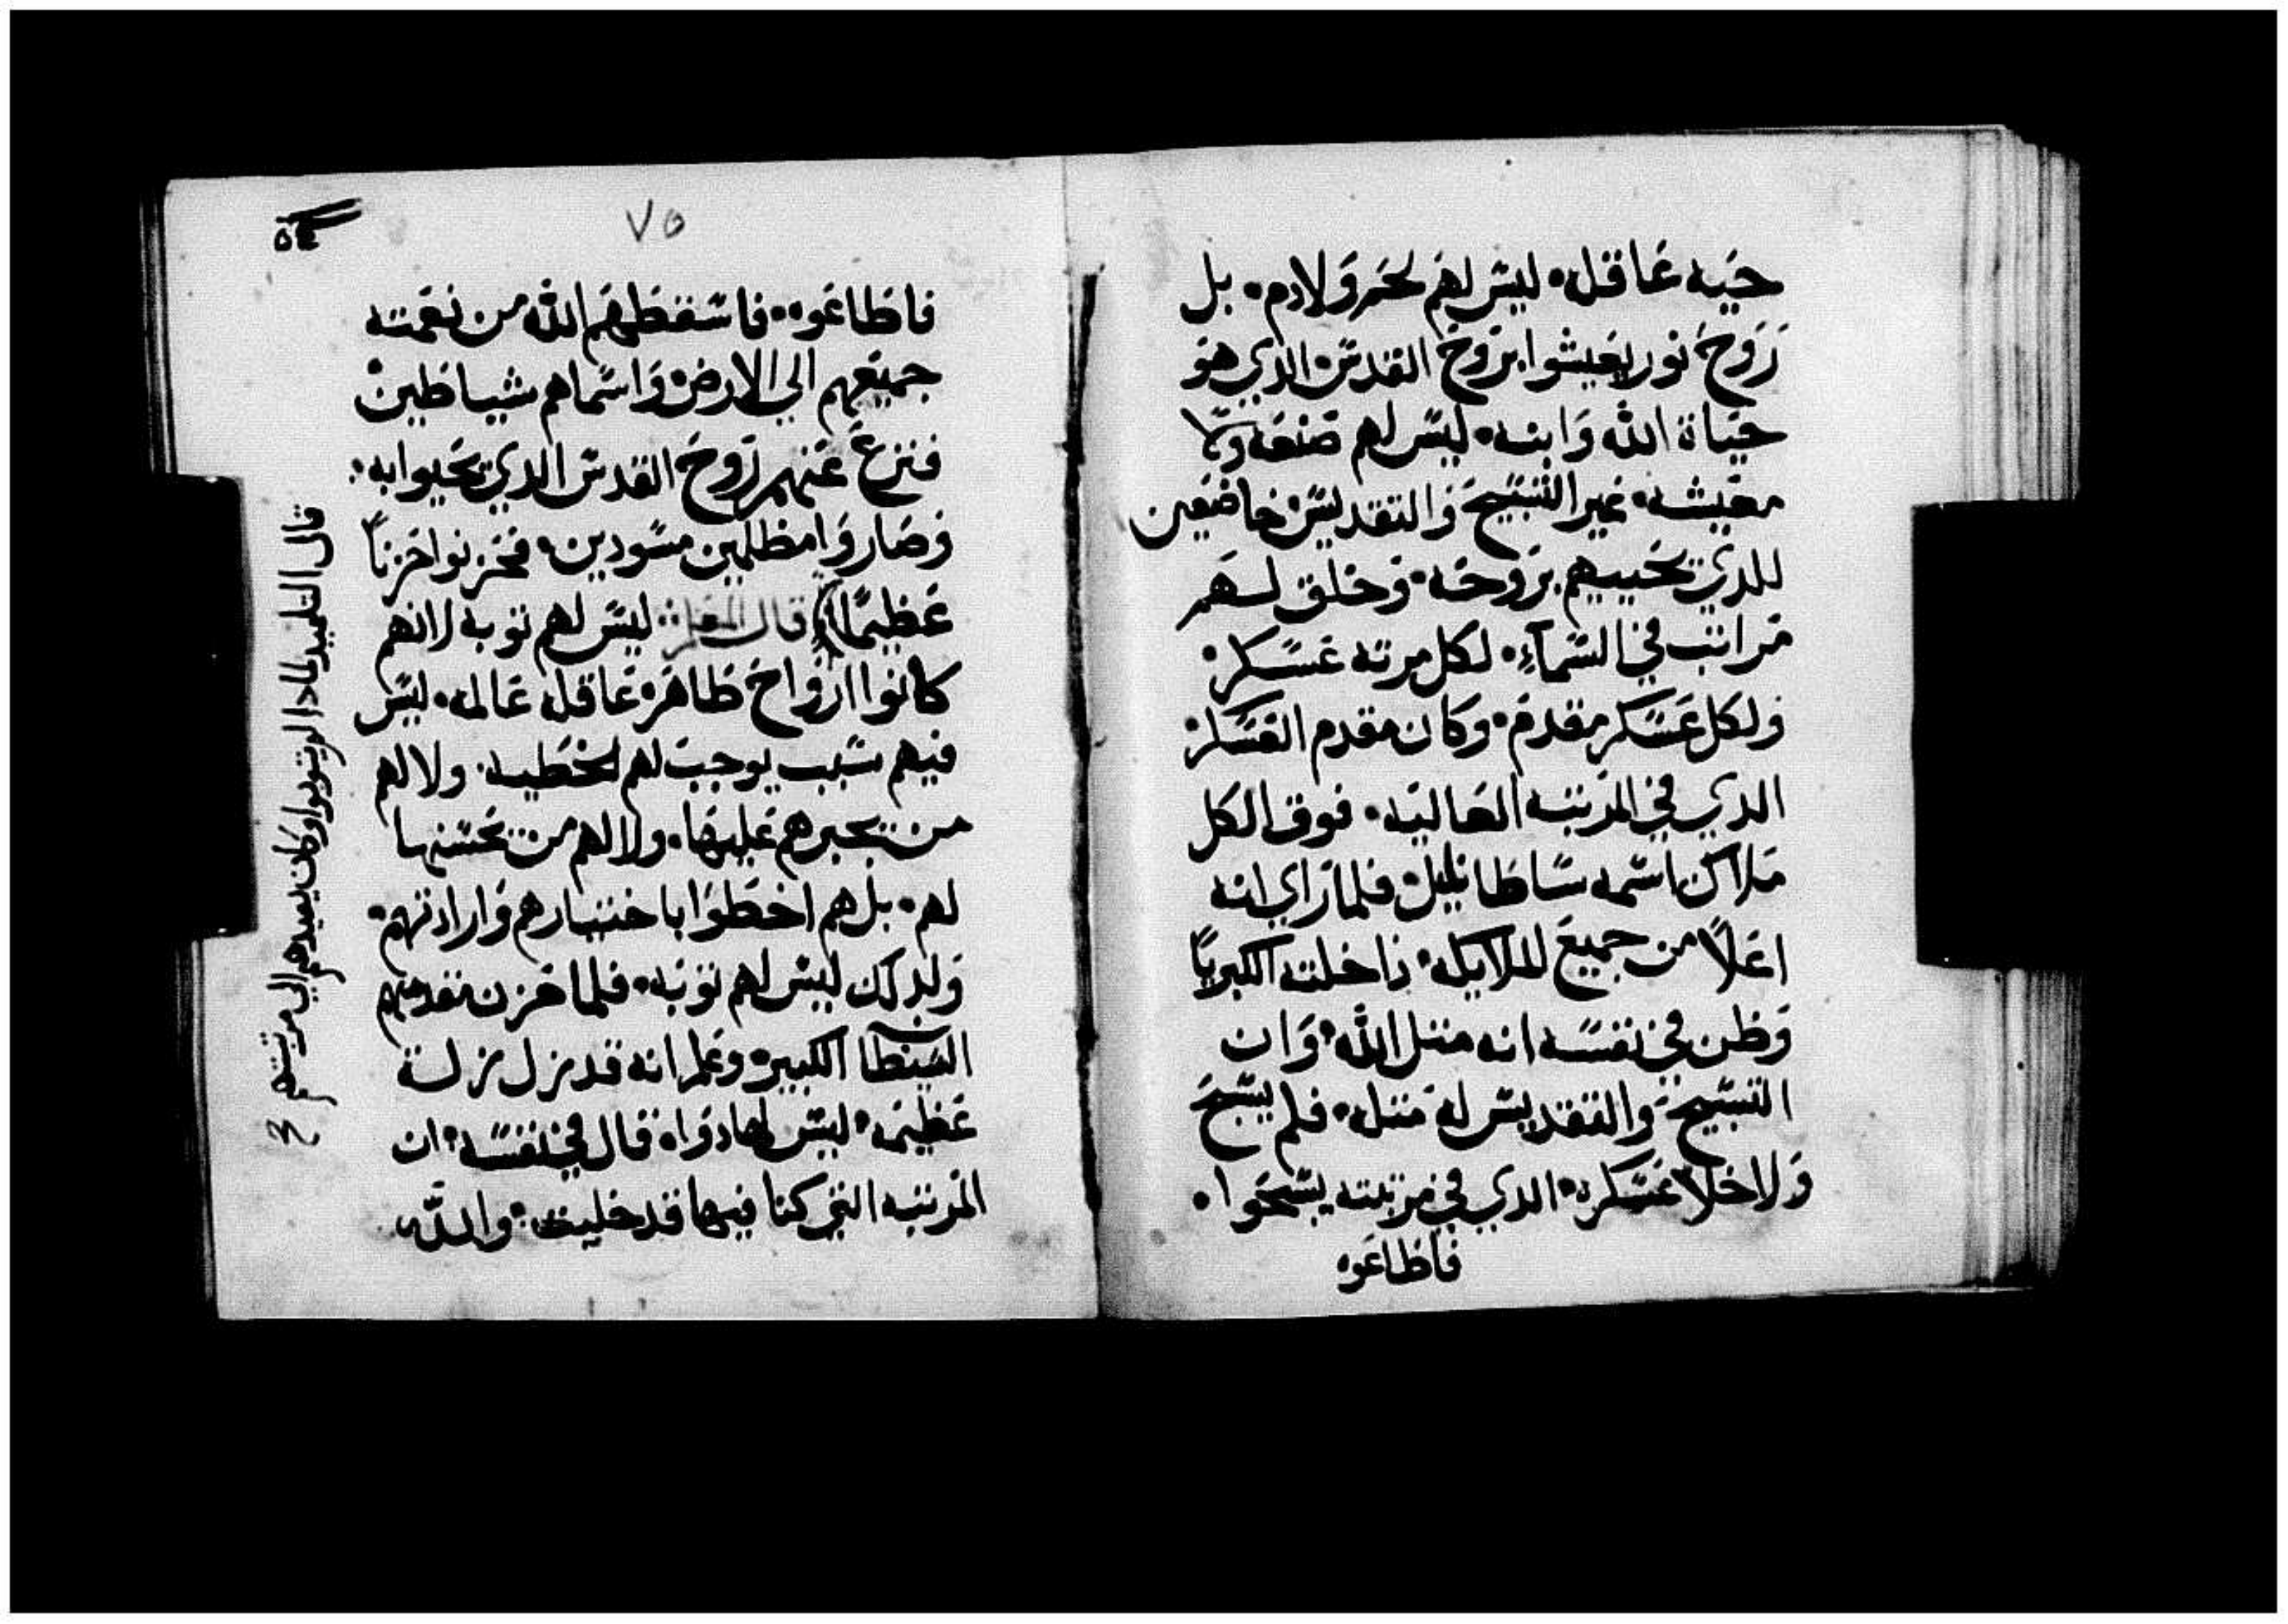 حيه عاقله. ليس لهم لحم ولا دم. بل
روح نور يعيشوا بروح القدس الدي هو
حياة الله وابنه. ليس لهم صنعه ولا
معيشه. غير التسبيح والتقديس خاضعين
للدي يحييهم بروحه. وخلق لهم
مراتب في السماء. لكل مرتبه عسكر.
ولكل عسكر مقدم. وكان مقدم العسكر
الدي في المرتبه العاليه. فوق الكل
ملاك اسمه ساطانييل فلما راي انه
اعلا من جميع الملايكه. داخلته الكبريا
وظن في نفسه انه متل الله. وان
التسبيح والتقديس له متله. فلم يسبح
ولا خلا عسكره. الدي في مرتبته يسبحوا.
فاطاعوه
٧٥
فاطاعوه. فاسقطهم الله من نعمته
جميعهم الي الارض واسماهم شياطين
فنزع عنهم روح القدس الدي يحيوا به.
وصاروا مظلمين مسودين. فحزنوا حزناً
عظيماً قال المعلم ليس لهم توبه لانهم
كانوا ارواح طاهره عاقله عالمه. ليس
فيهم سبب يوجب لهم الخطيه. ولا لهم
من يجبرهم عليها. ولا لهم من يحسنها
لهم. بل هم اخطوا باختيارهم وارادتهم.
ولدلك ليس لهم توبه. فلما حزن مقدمهم
الشيطا الكبير وعلم انه قد نزل نزلة
عظيمه. ليس لها دواه قال في نفسه. ان
المرتبه التي كنا فيها قد خليت. والله
قال التلميد لمادا لم يتوبوا وكان يعيدهم الي مرتبتهم